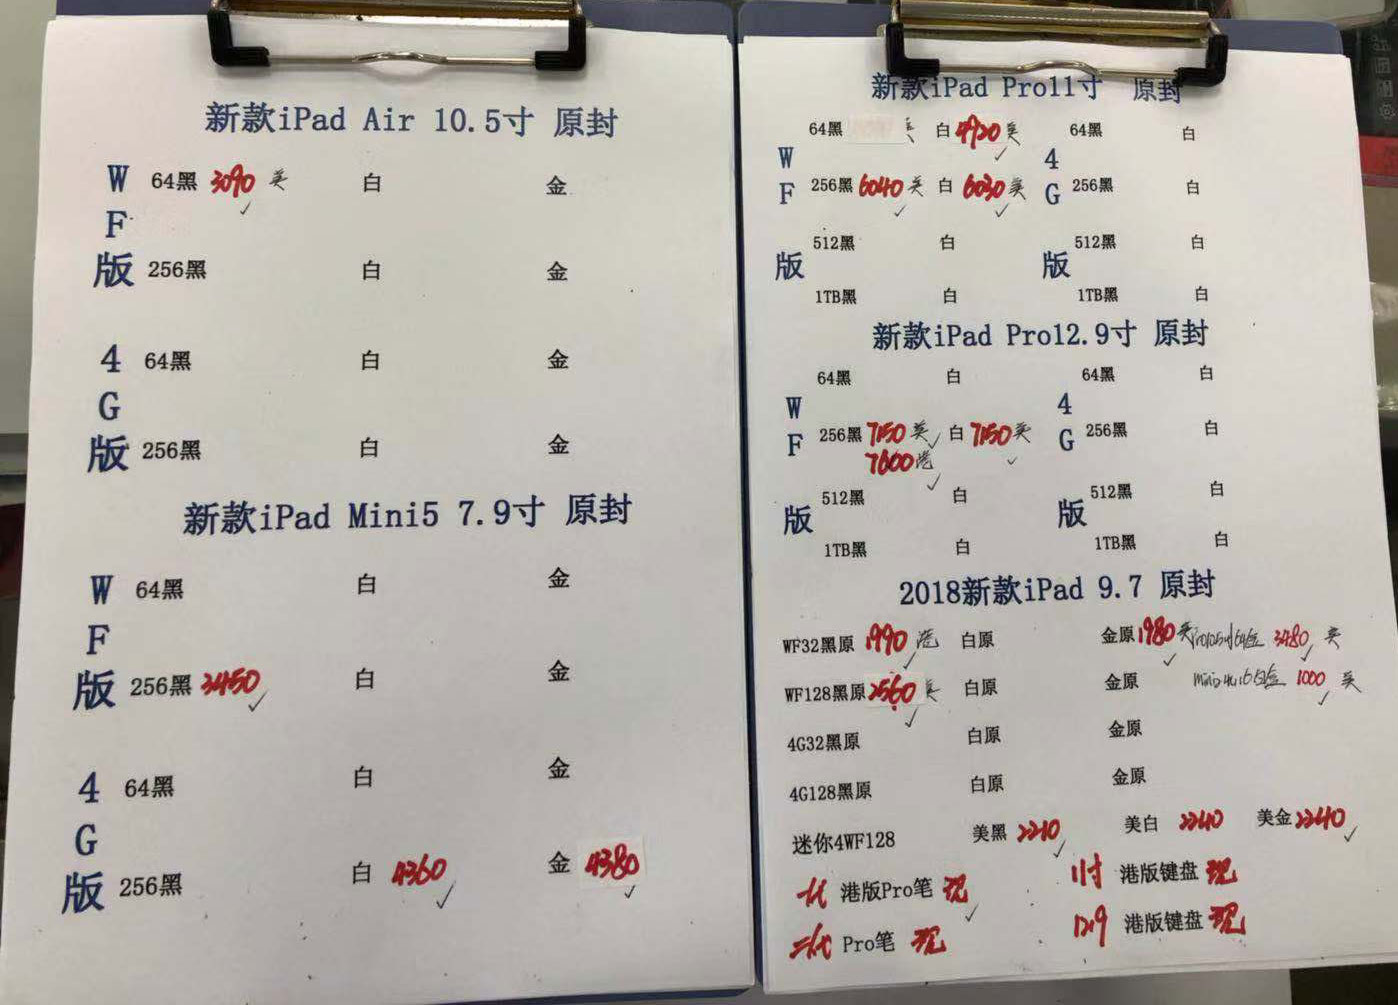 新款iPad Air 10.5寸 原封
WF版
64黑 3090 美 白 金
256黑 白 金
4G版
64黑 白 金
256黑 白 金
新款iPad Mini5 7.9寸 原封
WF版
64黑 白 金
256黑 3450 白 金
4G版
64黑 白 金
256黑 白 4360 金 4380
新款iPad Pro11寸 原封
WF版
64黑 白 4920 美
256黑 6040 美 白 6030 美
512黑 白
1TB黑 白
4G版
64黑 白
256黑 白
512黑 白
1TB黑 白
新款iPad Pro12.9寸 原封
WF版
64黑 白
256黑 7150 美 白 7150 美
7600 港
512黑 白
1TB黑 白
4G版
64黑 白
256黑 白
512黑 白
1TB黑 白
2018新款iPad 9.7 原封
WF32黑原 1990 港 白原 金原 1980 美 3480 美
WF128黑原 2560 美 白原 金原 1000 美
4G32黑原 白原 金原
4G128黑原 白原 金原
迷你4WF128 美黑 2210 美白 2240 美金 2240
一代 港版Pro笔 现 11寸 港版键盘 现
二代 Pro笔 现 12.9 港版键盘 现